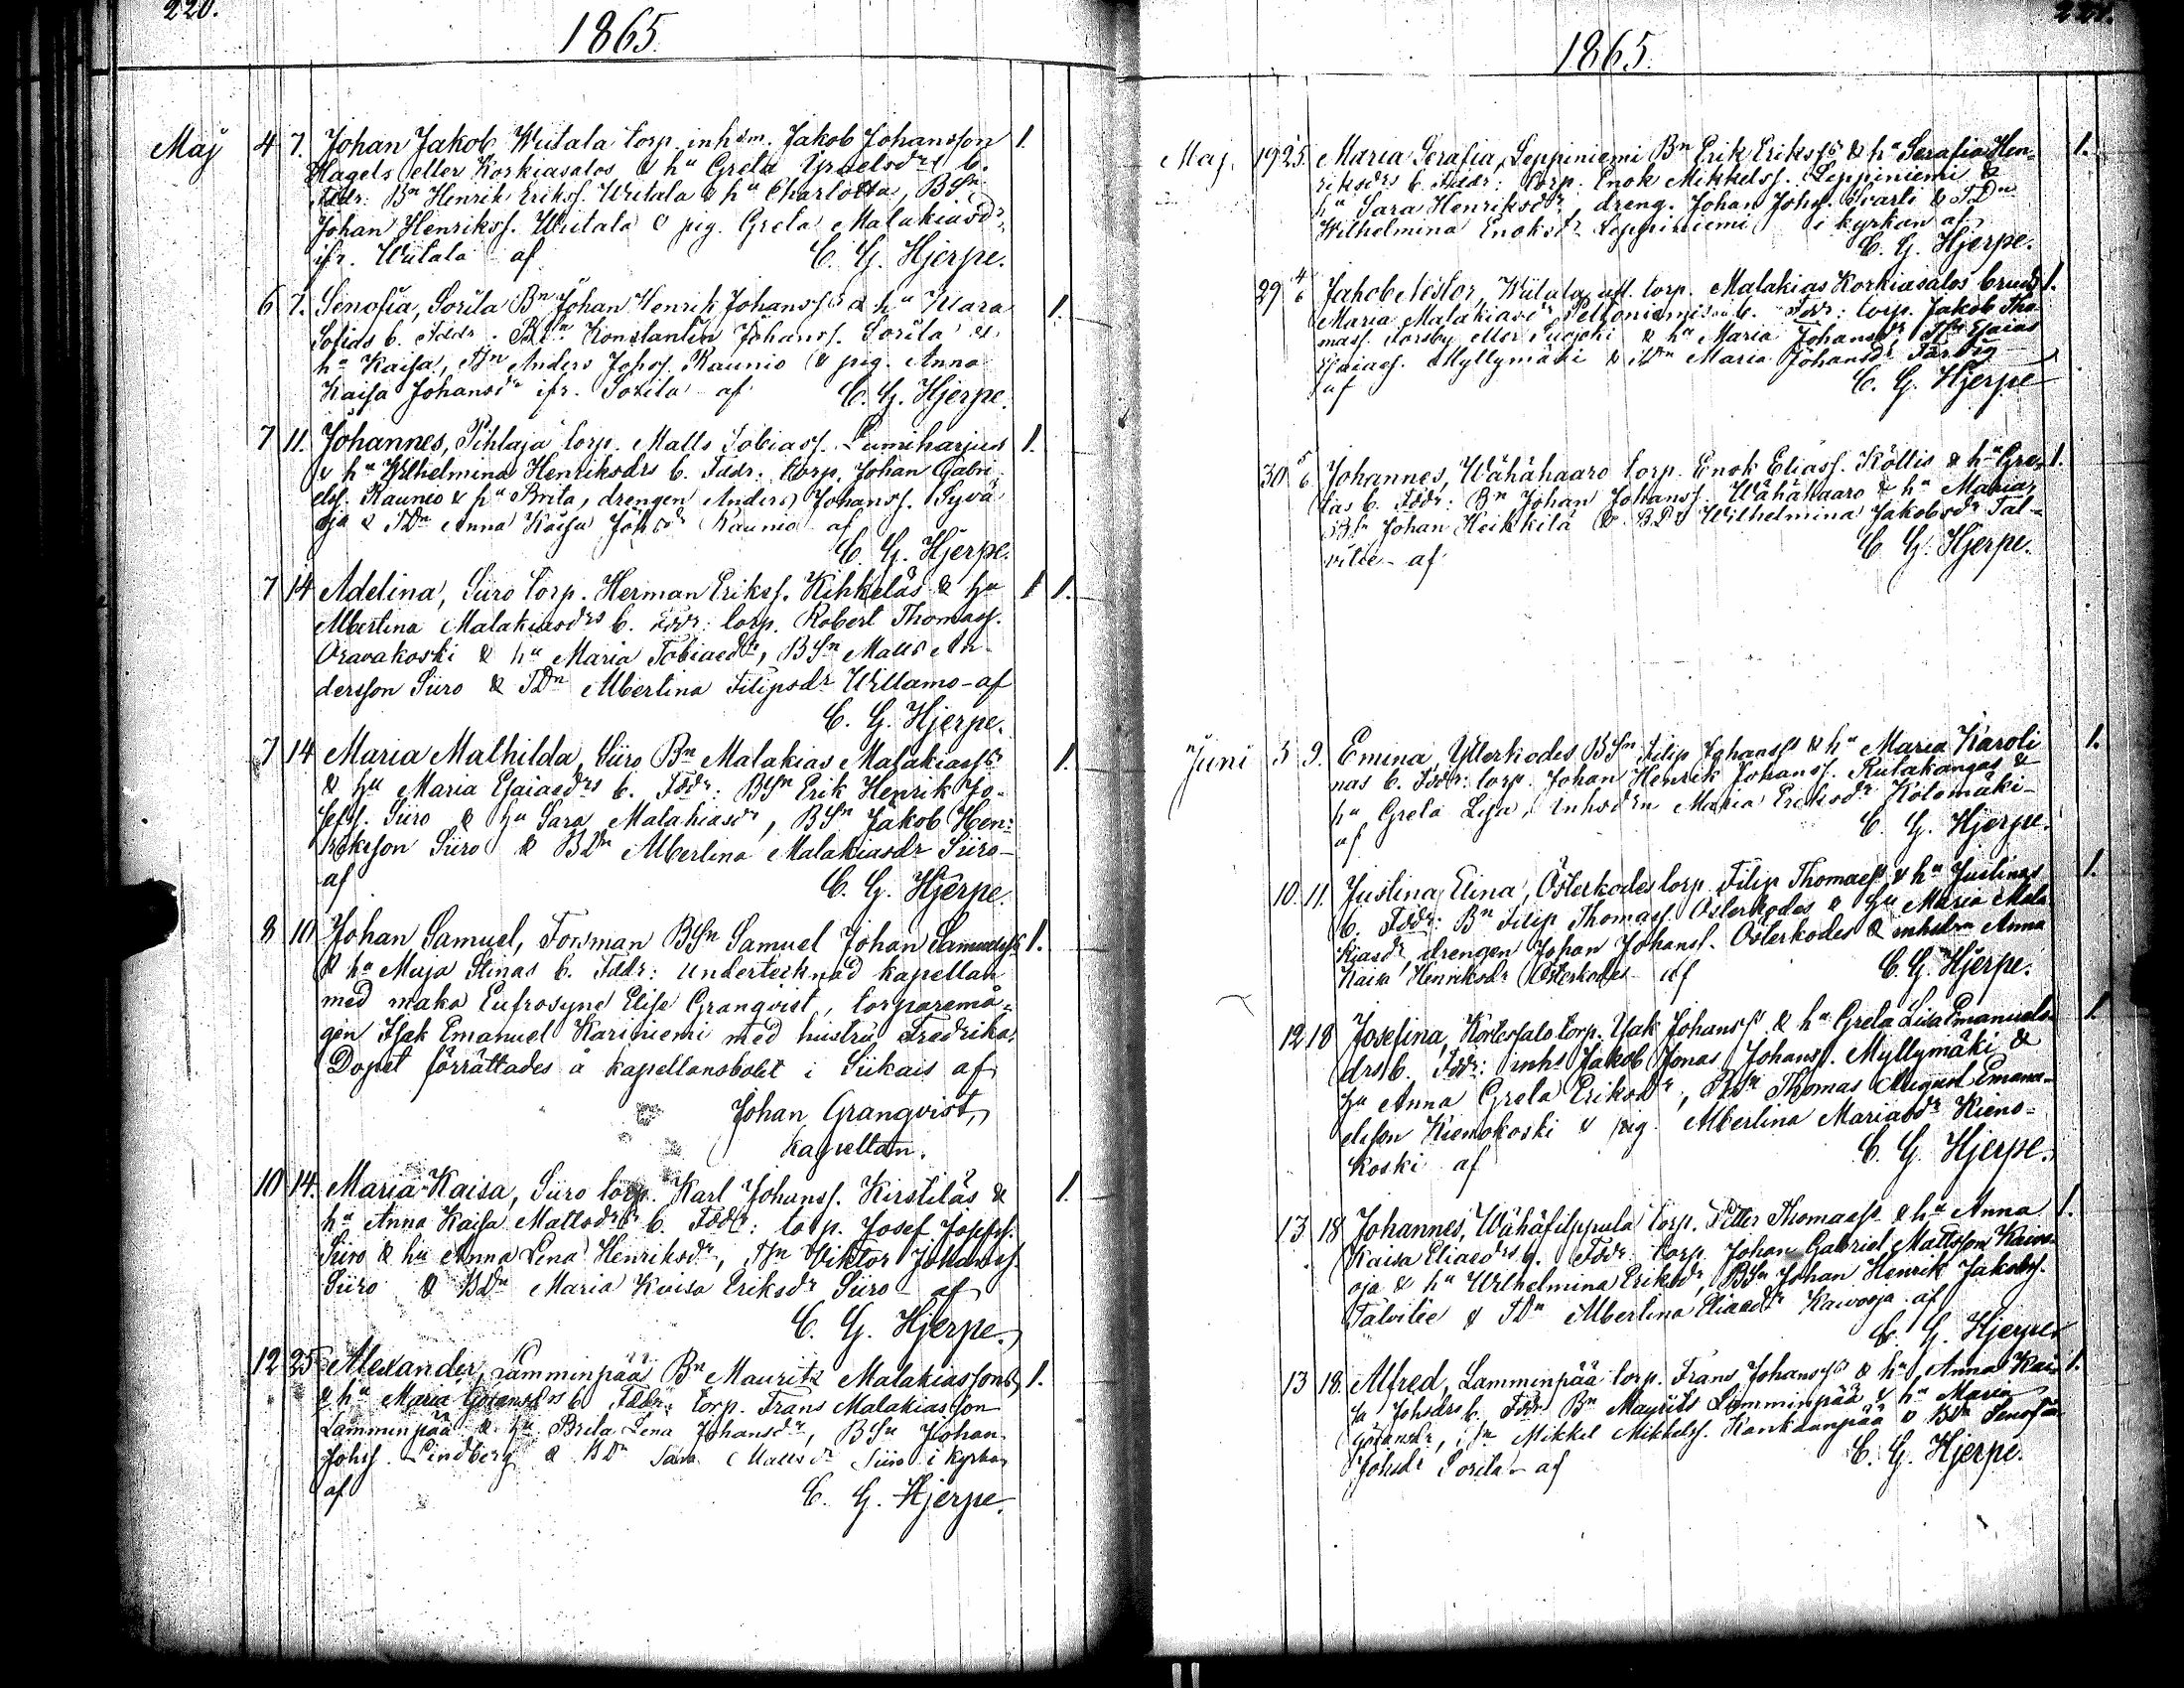 220.
1865.
Maj 4 7. Johan Jakob, Wiitala torp. inhsm. Jakob Johansson 1.
Hagels eller Korkiasalos & hu Greta Israelsdrs b.
Fddr: Bn Henrik Erikss. Wiitala & hu Charlotta, BSn
Johan Henrikss. Wiitala & pig. Greta Malakiasdr
ifr. Wiitala af C. G. Hjerpe.
6 7. Senofia, Sorila Bn Johan Henrik Johanss & hu Klara 1.
Sofias b. Fddr. BSn Konstantin Johanss. Sorila &
hu Kaisa, Anders Johss. Kaunio & pig. Anna
Kaisa Johansdr ifr. Sorila af C. G. Hjerpe.
7 11. Johannes, Pihlaja torp. Matts Tobiass. Lumiharjus 1.
& hu Wilhelmina Henriksdrs b. Fddr. torp. Johan Gabri
elss. Kaunio & hu Brita, drengen Anders Johanss. Syvä
oja & TDn Anna Kaisa Johsdr Kaunio af
C. G. Hjerpe.
7 14 Adelina, Siiro torp. Herman Erikss. Kihkeläs & hu 1 1.
Albertina Malakiasdrs b. Fddr: torp. Robert Thomass.
Oravakoski & hu Maria Tobiaedr, BSn Matts An
dersson Siiro & TDn Albertina Filipsdr Willamo - af
C. G. Hjerpe.
7 14 Maria Mathilda, Siiro Bn Malakias Malakiass 1.
& hu Maria Esaiaedrs b. Fddr: BSn Erik Henrik Jo-
sefss. Siiro & hu Sara Malakiasdr, BSn Jakob Hen-
riksson Siiro & BDn Albertina Malakiasdr Siiro -
af C. G. Hjerpe.
8 10 Johan Samuel, Forsman BSn Samuel Johan Samuelss 1.
& hu Maja Stinas b. Fddr: undertecknad kapellan
med maka Eufrosyne Elise Granqvist, torparemå-
gen Isak Emanuel Kariniemi med hustru Fredrika.
Dopet förrättades å kapellansbolet i Siikais af
Johan Granqvist,
kapellan.
10 14. Maria Kaisa, Siiro torp. Karl Johanss. Kirstiläs & 1.
hu Anna Kaisa Mattsdrs b. Fddr: torp. Josef Josefss.
Siiro & hu Anna Lena Henriksdr, Viktor Johanss.
Siiro & BDn Maria Kaisa Eriksdr Siiro - af
C. G. Hjerpe.
12 25 Alexander, Lamminpää Bn Maurits Malakiassons 1.
& hu Maria Göransdrs b. Fddr: torp. Frans Malakiasson
Lamminpää & hu Brita Lena Johansdr, BSn Johan
Johss. Lindberg & BDn Sara Mattsdr Siiro i kyrkan
af C. G. Hjerpe.
221.
1865.
Maj. 19 25. Maria Serafia, Leppiniemi Bn Erik Erikss & hu Serafia Hen- 1.
riksdrs b. Fddr: torp. Enok Mikkelss. Leppiniemi &
hu Sara Henriksdr, dreng. Johan Johss. & TDn
Wilhelmina Enoksdr Leppiniemi i kyrkan af
C. G. Hjerpe.
29 4/6 Jakob Nestor, Wiitala aft. torp. Malakias Korkiasalos 1.
Maria Malakiasdr b. Fddr: torp. Jakob Tho-
mass. eller & hu Maria Johansdr, Esaias
Esaiass. Myllymäki & TDn Maria Johansdr Färdig
af C. G. Hjerpe
30 5/6 Johannes, Wähähaaro torp. Enok Eliass. Köttis & hu Gre- 1.
tas b. Fddr: Bn Johan Johanss. Wähähaaro & hu Maria,
BSn Johan Heikkilä & BDn Wilhelmina Jakobsdr Tal-
vitie - af C. G. Hjerpe.
Juni 3 9. Emina, Ytterkodes BSn Filip Johanss & hu Maria Karoli 1.
nas b. Fddr: torp. Johan Henrik Johanss. Rutakangas &
hu Greta Lisa, Maria Eriksdr Kotomäki -
af C. G. Hjerpe.
10. 11. Justina Elina, Österkodes torp. Filip Thomass & hu Justinas 1.
b. Fddr: Bn Filip Thomass. Österkodes & hu Maria Mala
kiasdr, drengen Johan Johanss. Österkodes & Anna
Kaisa Henriksdr Österkodes af C. G. Hjerpe.
12 18 Josefina, Kortessalo torp. Isak Johanss & hu Greta Lisa Emanuels- 1.
drs b. Fddr: inhs Jakob Jonas Johanss. Myllymäki &
hu Anna Greta Eriksdr, Thomas August Emanu-
elsson Kienokoski & pig. Albertina Mariasdr Kieno-
koski af C. G. Hjerpe.
13 18 Johannes, Wähäfilppula torp. Petter Thomass & hu Anna 1.
Kaisa Eliaedrs b. Fddr torp. Johan Gabriel Mattsson Kaivo-
oja & hu Wilhelmina Eriksdr, BSn Johan Henrik Jakobss.
Talvitie & TDn Albertina Eliaedr Kaivooja af
C. G. Hjerpe
13 18. Alfred, Lamminpää torp. Frans Johanss & hu Anna Kai- 1.
sa Johsdrs b. Fddr Bn Maurits Lamminpää & hu Maria
Göransdr, Mikkel Mikkelss. Kankaanpää & BDn Senofia
Johsdr Sorila - af C. G. Hjerpe.